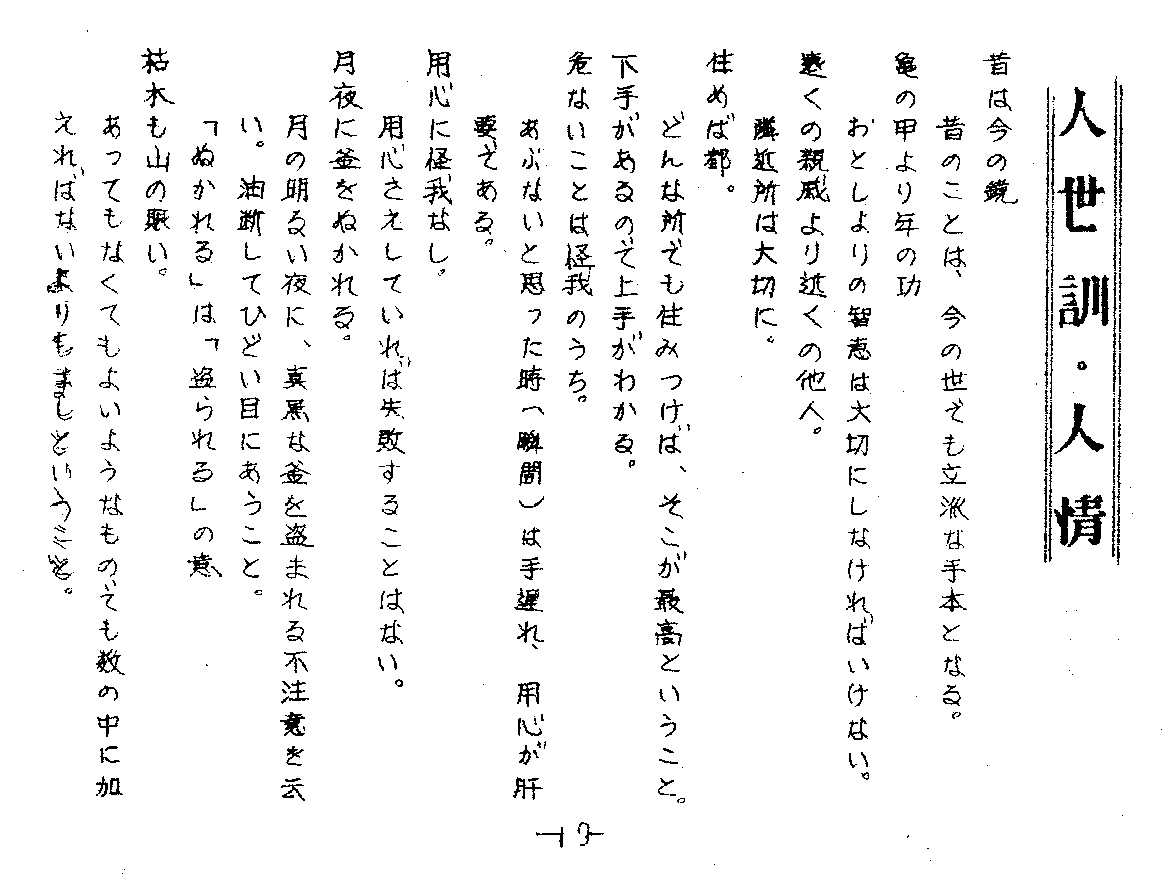 人世訓・人情
昔は今の鏡
昔のことは、今の世でも立派な手本となる。
亀の甲より年の功
おとしよりの智恵は大切にしなければいけない。
遠くの親戚より近くの他人。
隣近所は大切に。
住めば都。
どんな所でも住みつけば、そこが最高ということ。
下手があるので上手がわかる。
危ないことは怪我のうち。
あぶないと思った時(瞬間)は手遅れ、用心が肝
要である。
用心に怪我なし。
用心さえしていれば失敗することはない。
月夜に釜をぬかれる。
月の明るい夜に、真黒な釜を盗まれる不注意を云
い。油断してひどい目にあうこと。
「ぬかれる」は「盗られる」の意、
枯木も山の賑い。
あってもなくてもよいようなものでも数の中に加
えればないよりもましということ。